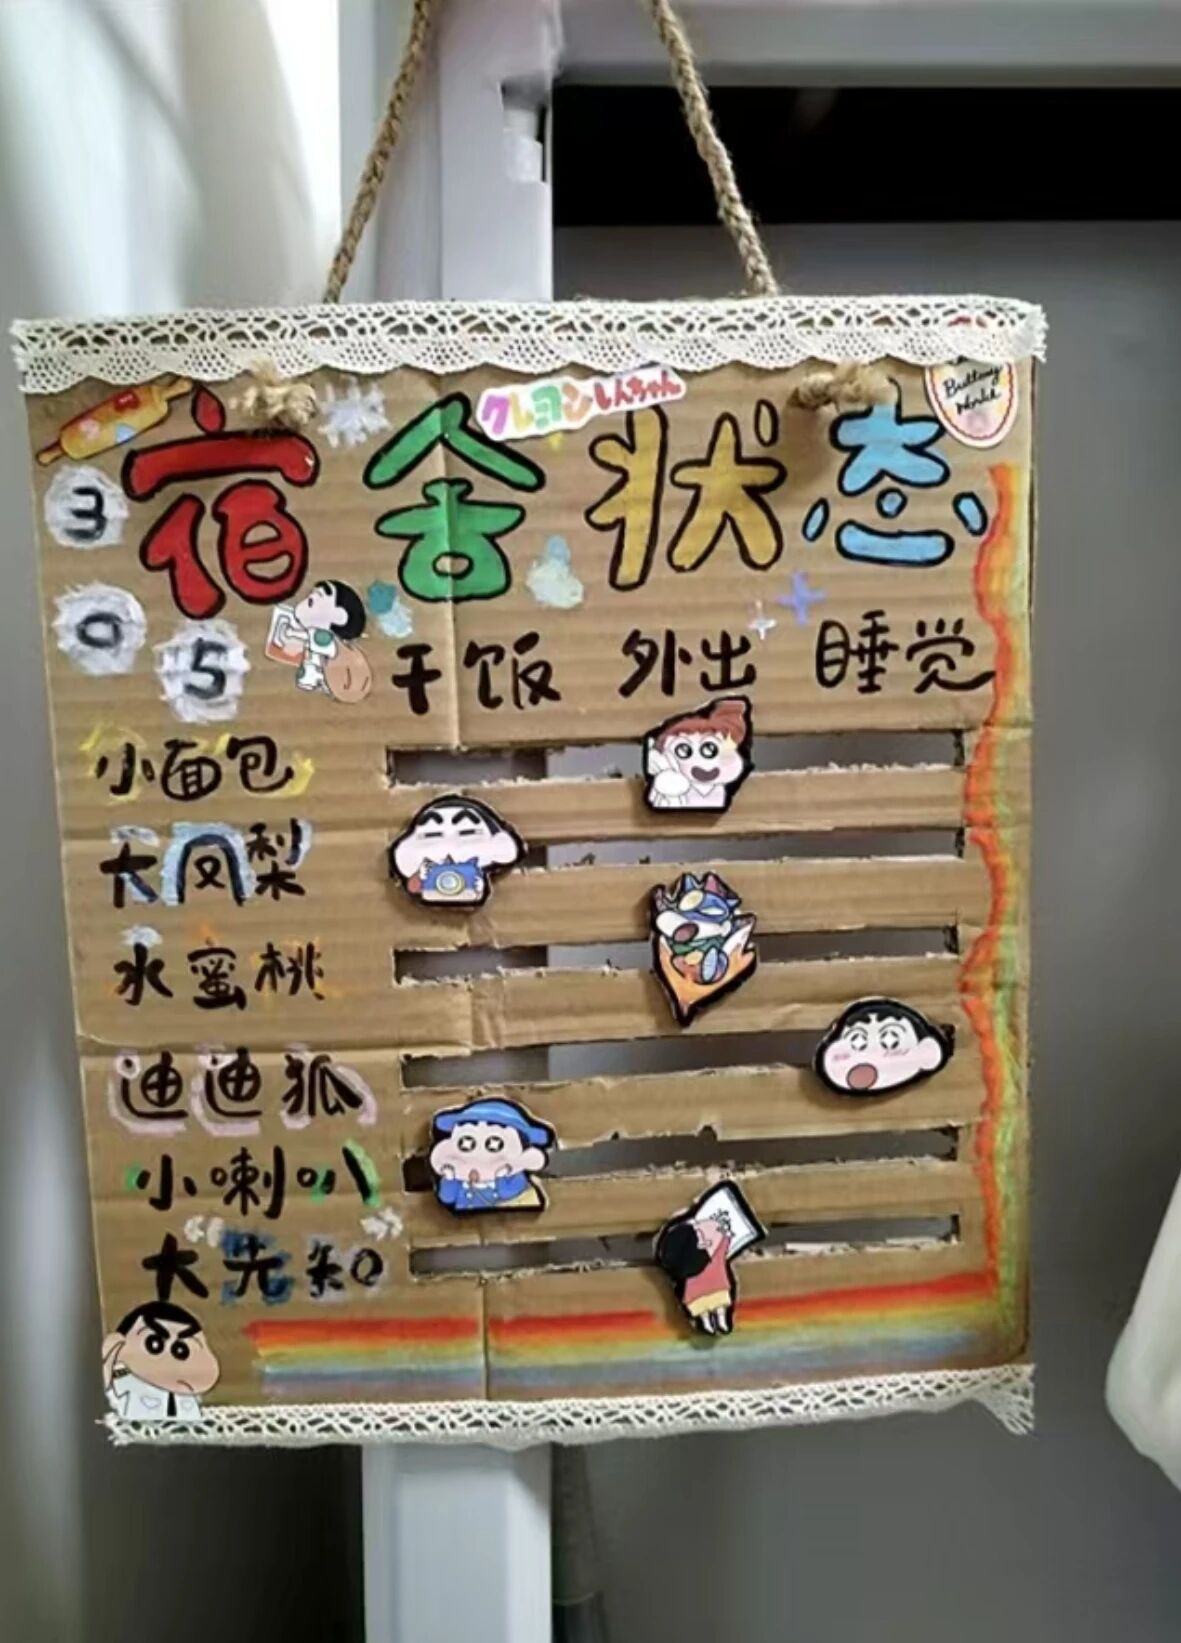 クレヨンしんちゃん
宿舍状态
3
0
5
干饭 外出 睡觉
小面包
大凤梨
水蜜桃
迪迪狐
小喇叭
大先知